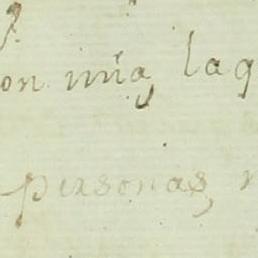 on mía, la q
personas,